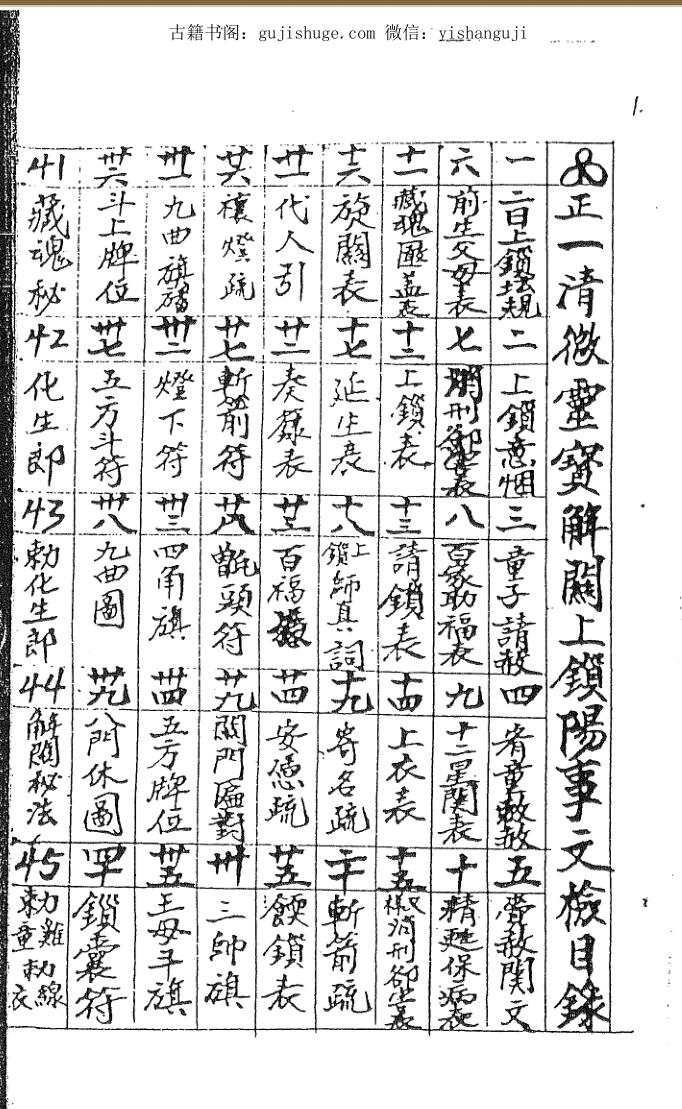 古籍书阁：gujishuge.com 微信：yishanguji
1.
正一清微靈寶解關上鎖陽事文檢目錄
一 二日上鎖壇規
二 上鎖意烟
三 童子請赦
四 宥童赦赦
五 賫赦關文
六 前生父母表
七 消刑卻害表
八 百家助福表
九 十二星關表
十 精魂保病表
十一 藏魂匭蓋表
十二 上鎖表
十三 請鎖表
十四 上衣表
十五 又樣消刑卻害表
十六 旋關表
十七 延生表
十八 上鎖師真詞
十九 寄名疏
二十 斬箭疏
廿一 代人引
廿二 奏籙表
廿三 百福
廿四 安德疏
廿五 餪鎖表
廿六 禳燈疏
廿七 斬箭符
廿八 頸符
廿九 關門匾對
卅 三帥旗
卅一 九曲旗旛
卅二 燈下符
卅三 四角旗
卅四 五方牌位
卅五 王母手旗
卅六 斗上牌位
卅七 五方斗符
卅八 九曲圖
卅九 八門休圖
四十 鎖囊符
41 藏魂秘
42 化生郎
43 勅化生郎
44 解關秘法
45 勅雞勅線勅童衣